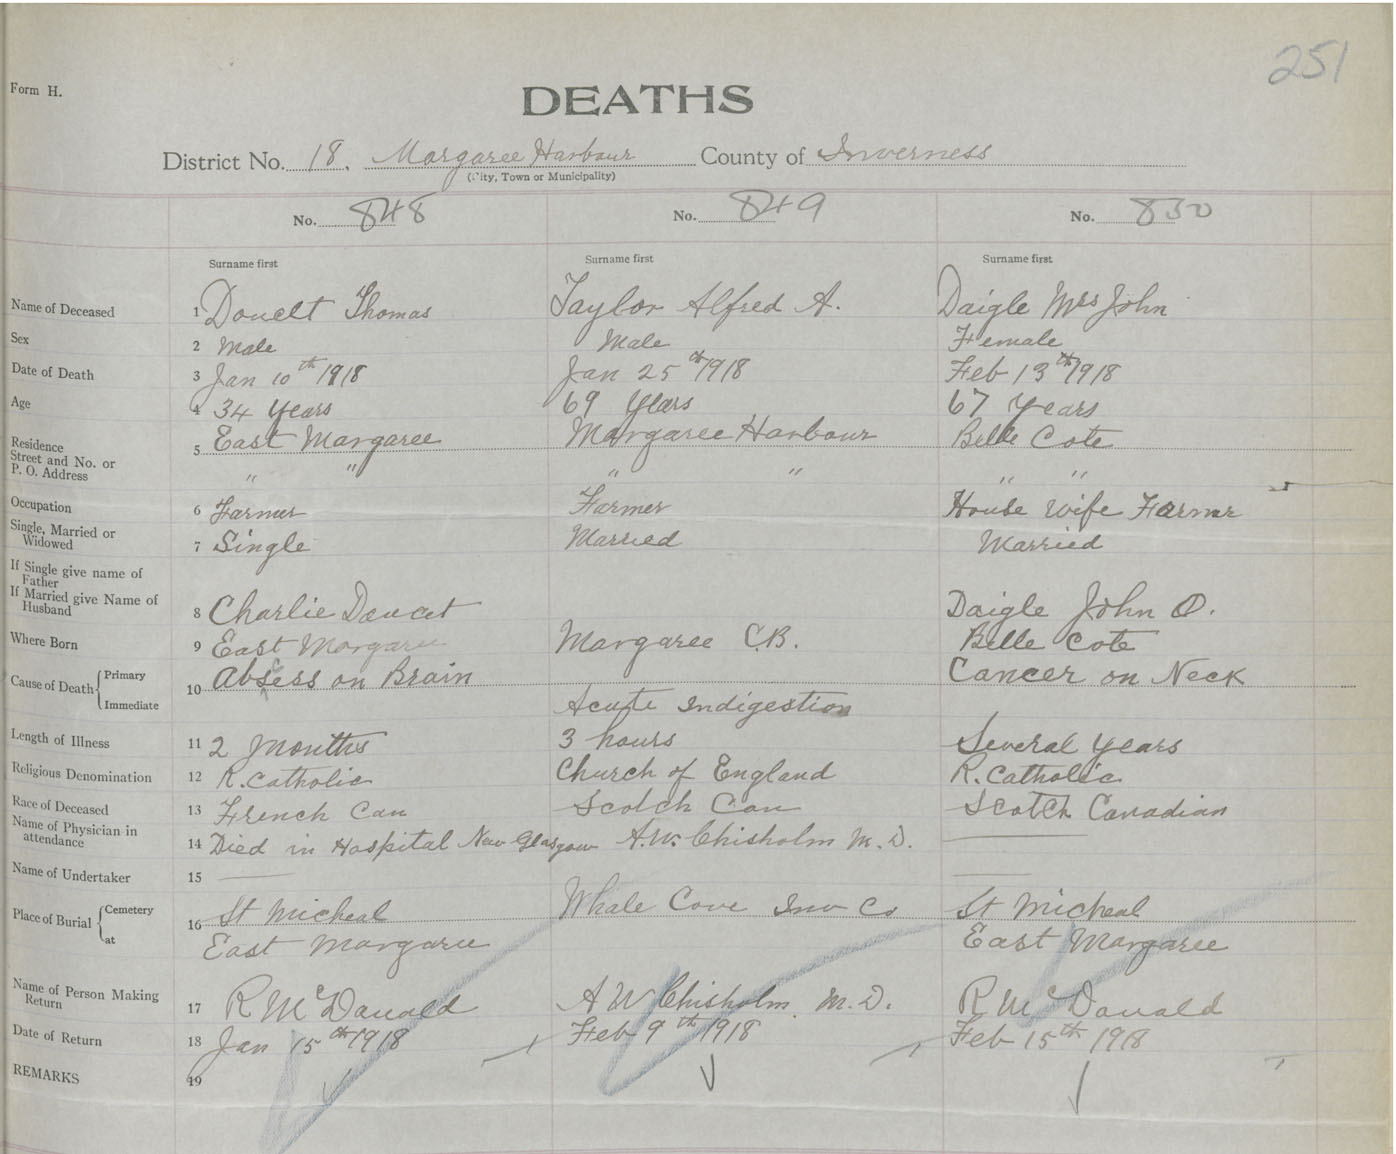 251
Form H.
DEATHS
District No. 18. Margaree Harbour County of Inverness
(City, Town or Municipality)
No. 848 No. 849 No. 850
Surname first Surname first Surname first
Name of Deceased 1 Doucet Thomas Taylor Alfred A. Daigle Mrs John
Sex 2 Male Male Female
Date of Death 3 Jan 10th 1918 Jan 25th 1918 Feb 13th 1918
Age 4 34 Years 69 Years 67 Years
Residence 5 East Margaree Margaree Harbour Belle Cote
Street and No. or
P. O. Address " " " " " "
Occupation 6 Farmer Farmer House Wife Farmer
Single, Married or
Widowed 7 Single Married Married
If Single give name of
Father
If Married give Name of
Husband 8 Charlie Doucet Daigle John O.
Where Born 9 East Margaree Margaree C.B. Belle Cote
Cause of Death { Primary 10 Absess on Brain Cancer on Neck
Immediate Acute Indigestion
Length of Illness 11 2 months 3 hours Several Years
Religious Denomination 12 R. Catholic Church of England R. Catholic
Race of Deceased 13 French Can Scotch Can Scotch Canadian
Name of Physician in
attendance 14 Died in Hospital New Glasgow A.W. Chisholm M.D.
Name of Undertaker 15
Place of Burial { Cemetery 16 St Micheal Whale Cove Inv Co St Micheal
at East Margaree East Margaree
Name of Person Making
Return 17 R McDonald A W Chisholm. M.D. R McDonald
Date of Return 18 Jan 15th 1918 Feb 9th 1918 Feb 15th 1918
REMARKS 19